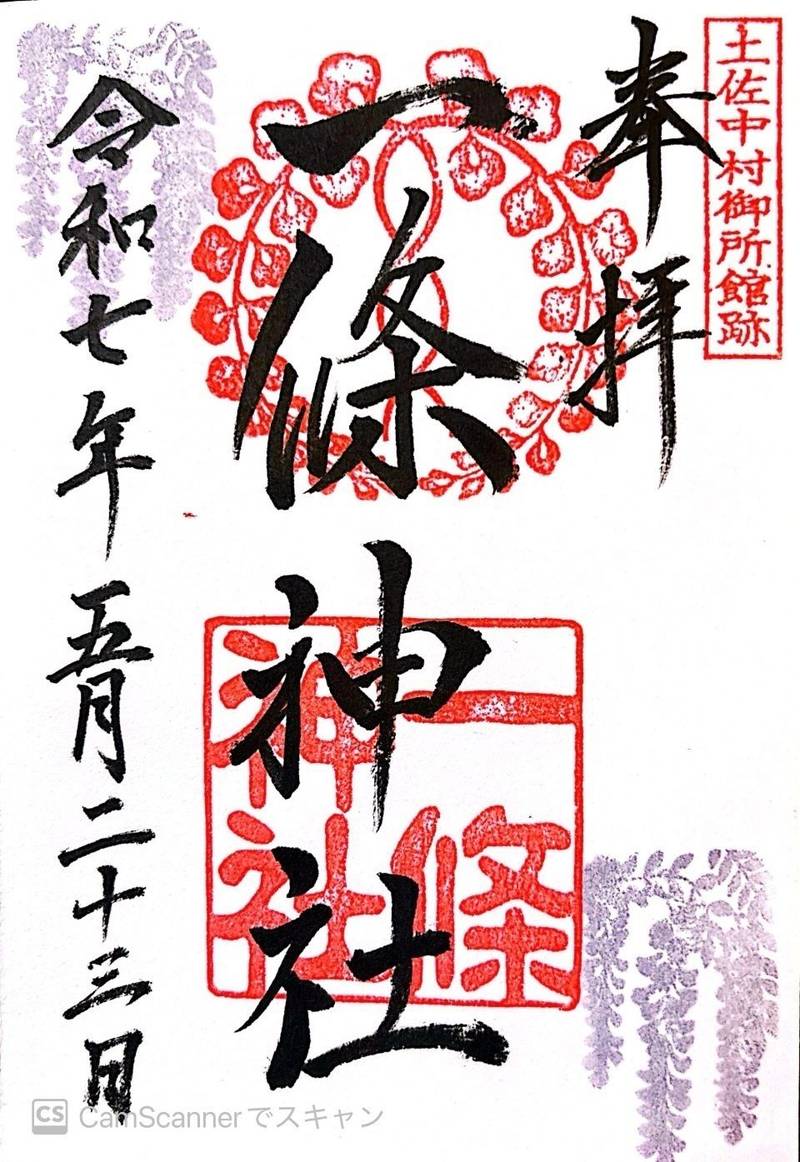 土佐中村御所館跡
奉拝
一條神社
一條神社
令和七年五月二十三日
CS CamScannerでスキャン